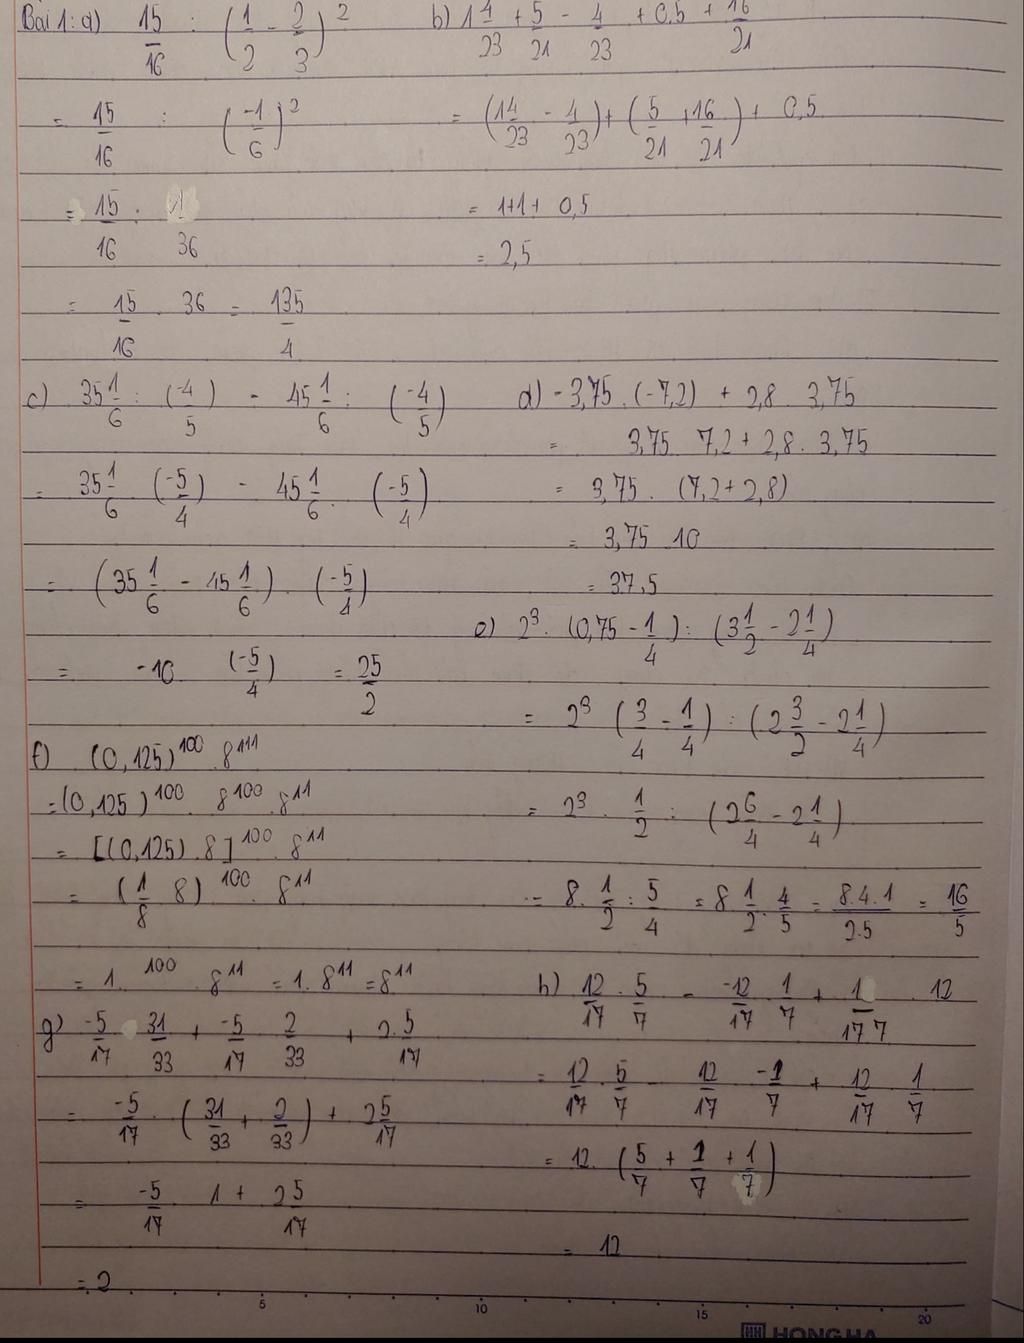 Bài 1: a) 15/16 : (1/2 - 2/3)^2
= 15/16 : (-1/6)^2
= 15/16 : 1/36
= 15/16 . 36 = 135/4
b) 1 4/23 + 5/21 - 4/23 + 0,5 + 16/21
= (1 4/23 - 4/23) + (5/21 + 16/21) + 0,5
= 1+1+ 0,5
= 2,5
c) 35 1/6 : (-4/5) - 45 1/6 : (-4/5)
= 35 1/6 (-5/4) - 45 1/6 . (-5/4)
= (35 1/6 - 45 1/6) . (-5/4)
= -10 (-5/4) = 25/2
d) - 3,75 . (-7,2) + 2,8 3,75
= 3,75 7,2 + 2,8 . 3,75
= 3,75 . (7,2 + 2,8)
= 3,75 10
= 37,5
e) 2^3 . (0,75 - 1/4) : (3 1/2 - 2 1/4)
= 2^3 (3/4 - 1/4) : (2 3/2 - 2 1/4)
= 2^3 . 1/2 : (2 6/4 - 2 1/4)
= 8 . 1/2 : 5/4 = 8 1/2 . 4/5 = 8.4.1/2.5 = 16/5
f) (0,125)^100 . 8^111
= (0,125)^100 . 8^100 . 8^11
= [(0,125) . 8]^100 . 8^11
= (1/8 8)^100 . 8^11
= 1.^100 . 8^11 = 1. 8^11 = 8^11
g) -5/17 . 31/33 + -5/17 2/33 + 2. 5/17
= -5/17 . (31/33 + 2/33) + 2 5/17
= -5/17 1 + 2 5/17
= 2
h) 12/17 . 5/7 - -12/17 . 1/7 + 1/17 7 . 12
= 12/17 . 5/7 - 12/17 -1/7 + 12/17 1/7
= 12. (5/7 + 1/7 + 1/7)
= 12
5 10 15 20
HONG HA